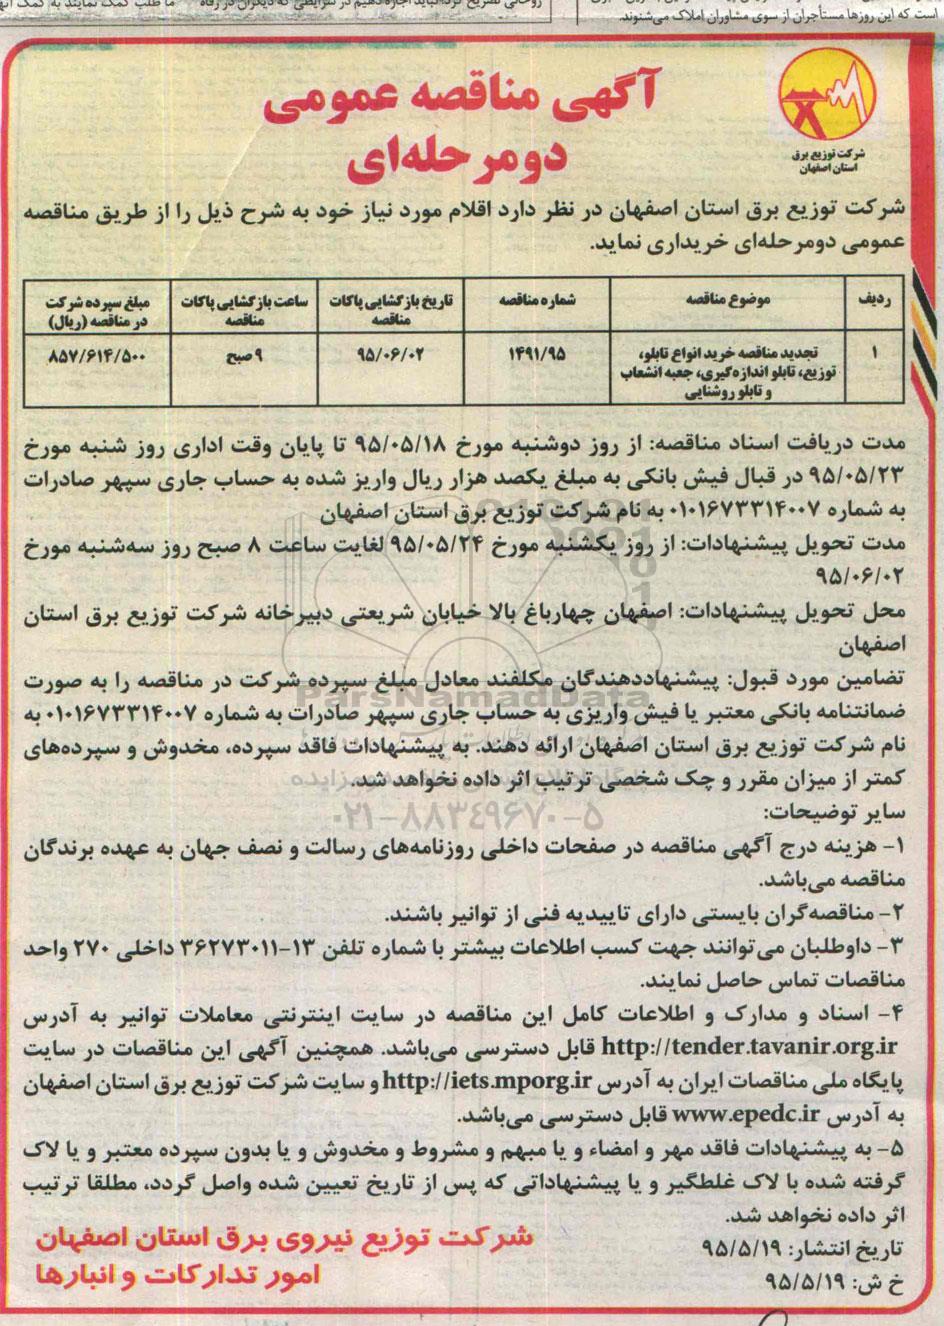 است که این روزها مستأجران از سوی مشاوران املاک می‌شنوند.
آگهی مناقصه عمومی
دومرحله‌ای
شرکت توزیع برق
استان اصفهان
شرکت توزیع برق استان اصفهان در نظر دارد اقلام مورد نیاز خود به شرح ذیل را از طریق مناقصه
عمومی دومرحله‌ای خریداری نماید.
ردیف
موضوع مناقصه
شماره مناقصه
تاریخ بازگشایی پاکات
مناقصه
ساعت بازگشایی پاکات
مناقصه
مبلغ سپرده شرکت
در مناقصه (ریال)
۱
تجدید مناقصه خرید انواع تابلو،
توزیع، تابلو اندازه‌گیری، جعبه انشعاب
و تابلو روشنایی
۱۴۹۱/۹۵
۹۵/۰۶/۰۲
۹ صبح
۸۵۷/۶۱۴/۵۰۰
مدت دریافت اسناد مناقصه: از روز دوشنبه مورخ ۹۵/۰۵/۱۸ تا پایان وقت اداری روز شنبه مورخ
۹۵/۰۵/۲۳ در قبال فیش بانکی به مبلغ یکصد هزار ریال واریز شده به حساب جاری سپهر صادرات
به شماره ۰۱۰۱۶۷۳۳۱۴۰۰۷ به نام شرکت توزیع برق استان اصفهان
مدت تحویل پیشنهادات: از روز یکشنبه مورخ ۹۵/۰۵/۲۴ لغایت ساعت ۸ صبح روز سه‌شنبه مورخ
۹۵/۰۶/۰۲
محل تحویل پیشنهادات: اصفهان چهارباغ بالا خیابان شریعتی دبیرخانه شرکت توزیع برق استان
اصفهان
تضامین مورد قبول: پیشنهاددهندگان مکلفند معادل مبلغ سپرده شرکت در مناقصه را به صورت
ParsNamadData
ضمانتنامه بانکی معتبر یا فیش واریزی به حساب جاری سپهر صادرات به شماره ۰۱۰۱۶۷۳۳۱۴۰۰۷ به
نام شرکت توزیع برق استان اصفهان ارائه دهند. به پیشنهادات فاقد سپرده، مخدوش و سپرده‌های
کمتر از میزان مقرر و چک شخصی ترتیب اثر داده نخواهد شد.
۰۲۱-۸۸۳۴۹۶۷۰-۵
سایر توضیحات:
۱- هزینه درج آگهی مناقصه در صفحات داخلی روزنامه‌های رسالت و نصف جهان به عهده برندگان
مناقصه می‌باشد.
۲- مناقصه‌گران بایستی دارای تاییدیه فنی از توانیر باشند.
۳- داوطلبان می‌توانند جهت کسب اطلاعات بیشتر با شماره تلفن ۱۳-۳۶۲۷۳۰۱۱ داخلی ۲۷۰ واحد
مناقصات تماس حاصل نمایند.
۴- اسناد و مدارک و اطلاعات کامل این مناقصه در سایت اینترنتی معاملات توانیر به آدرس
http://tender.tavanir.org.ir قابل دسترسی می‌باشد. همچنین آگهی این مناقصات در سایت
پایگاه ملی مناقصات ایران به آدرس http://iets.mporg.ir و سایت شرکت توزیع برق استان اصفهان
به آدرس www.epedc.ir قابل دسترسی می‌باشد.
۵- به پیشنهادات فاقد مهر و امضاء و یا مبهم و مشروط و مخدوش و یا بدون سپرده معتبر و یا لاک
گرفته شده با لاک غلطگیر و یا پیشنهاداتی که پس از تاریخ تعیین شده واصل گردد، مطلقا ترتیب
اثر داده نخواهد شد.
تاریخ انتشار: ۹۵/۵/۱۹
خ ش: ۹۵/۵/۱۹
شرکت توزیع نیروی برق استان اصفهان
امور تدارکات و انبارها